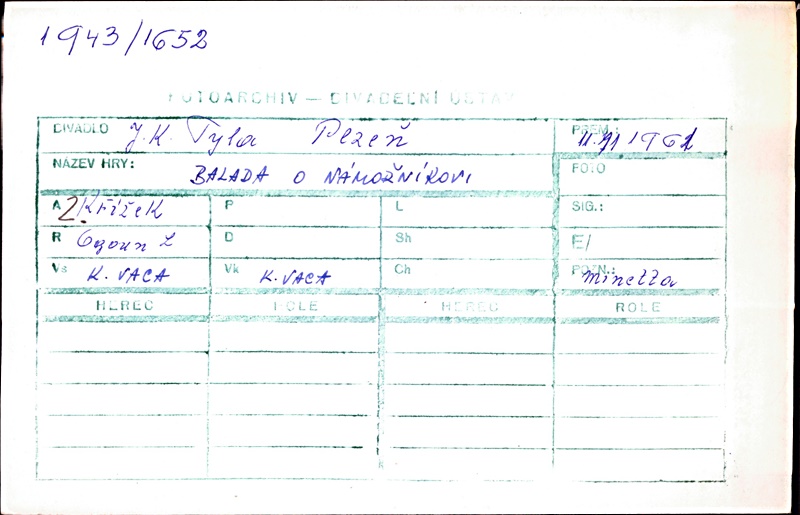 1943/1652
FOTOARCHIV — DIVADELNÍ ÚSTAV
DIVADLO J.K. Tyla Plzeň PREM.: 1961
NÁZEV HRY: BALADA O NÁMOŽNÍKOVI FOTO
A Z. Křížek P L SIG.:
R L D Sh E/
Vs K. VACA Vk K. VACA Ch POZN.: Minetta
HEREC ROLE HEREC ROLE